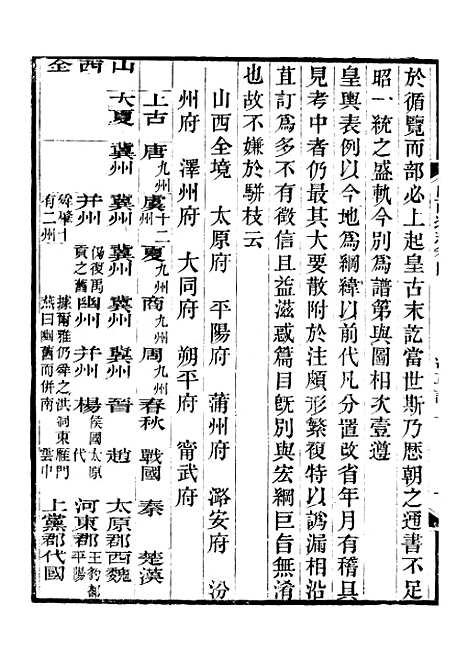 於循覽而部必上起皇古末訖當世斯乃歷朝之通書不足
昭一統之盛軌今別爲譜第與圖相次壹遵
皇輿表例以今地爲綱緯以前代凡分置改省年月有稽具
見考中者仍最其大要散附於注頗形繁複特以譌漏相沿
苴訂爲多不有猶且益滋惑篇目旣別與宏綱巨旨無淆
也故不嫌於駢枝云
山西全境 太原府 平陽府 蒲州府 潞安府 汾
州府 澤州府 大同府 朔平府 甯武府
上古 唐九州 虞十二州 夏九州 商九州 周九州 春秋 戰國 秦 楚漢
山 大夏 冀州 冀州 冀州 冀州 冀州 晉 趙 太原郡 西魏
西 并州 幽州 并州 楊侯國 代 河東郡 王豹都平陽
全 上黨郡 代國